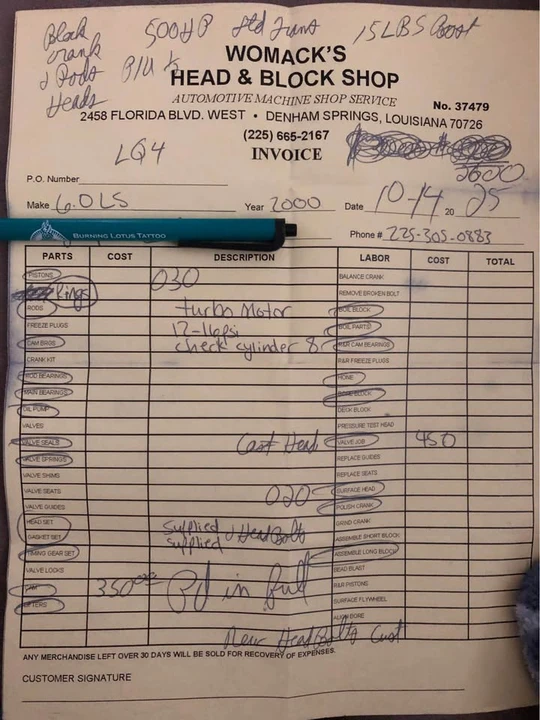 Block 500HP Std Trans 15LBS Boost
Crank
Rods
Heads
WOMACK'S
HEAD & BLOCK SHOP
AUTOMOTIVE MACHINE SHOP SERVICE
No. 37479
2458 FLORIDA BLVD. WEST • DENHAM SPRINGS, LOUISIANA 70726
(225) 665-2167
LQ4 INVOICE
3600
P.O. Number
Make 6.0LS Year 2000 Date 10-14 20 25
BURNING LOTUS TATTOO
Phone # 225-305-0883
PARTS COST DESCRIPTION LABOR COST TOTAL
PISTONS 030 BALANCE CRANK
Rings REMOVE BROKEN BOLT
RODS turbo Motor BOIL BLOCK
FREEZE PLUGS 12-16psi BOIL PARTS
CAM BRGS check cylinder 8 R&R CAM BEARINGS
CRANK KIT R&R FREEZE PLUGS
ROD BEARINGS HONE
MAIN BEARINGS BORE BLOCK
OIL PUMP DECK BLOCK
VALVES PRESSURE TEST HEAD
VALVE SEALS Cast Head VALVE JOB 450
VALVE SPRINGS REPLACE GUIDES
VALVE SHIMS REPLACE SEATS
VALVE SEATS 020 SURFACE HEAD
VALVE GUIDES POLISH CRANK
HEAD SET supplied GRIND CRANK
GASKET SET supplied Head Bolts ASSEMBLE SHORT BLOCK
TIMING GEAR SET ASSEMBLE LONG BLOCK
VALVE LOCKS BEAD BLAST
CAM 350 Pd in full R&R PISTONS
LIFTERS SURFACE FLYWHEEL
ALIGN BORE
New Head Bolts Cust
ANY MERCHANDISE LEFT OVER 30 DAYS WILL BE SOLD FOR RECOVERY OF EXPENSES.
CUSTOMER SIGNATURE